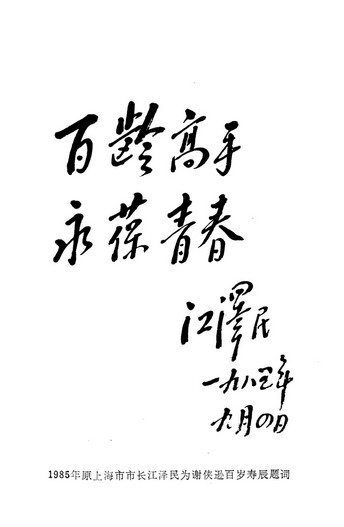 百龄高手
永葆青春
江泽民
一九八五年
九月四日
1985年原上海市市长江泽民为谢侠逊百岁寿辰题词